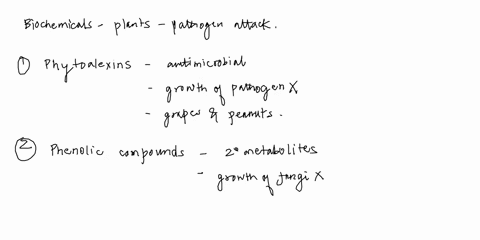 Biochemicals - plants - pathogen attack.
① Phytoalexins - antimicrobial
- growth of pathogen X
- grapes & peanuts.
② Phenolic compounds - 2° metabolites
- growth of fungi X